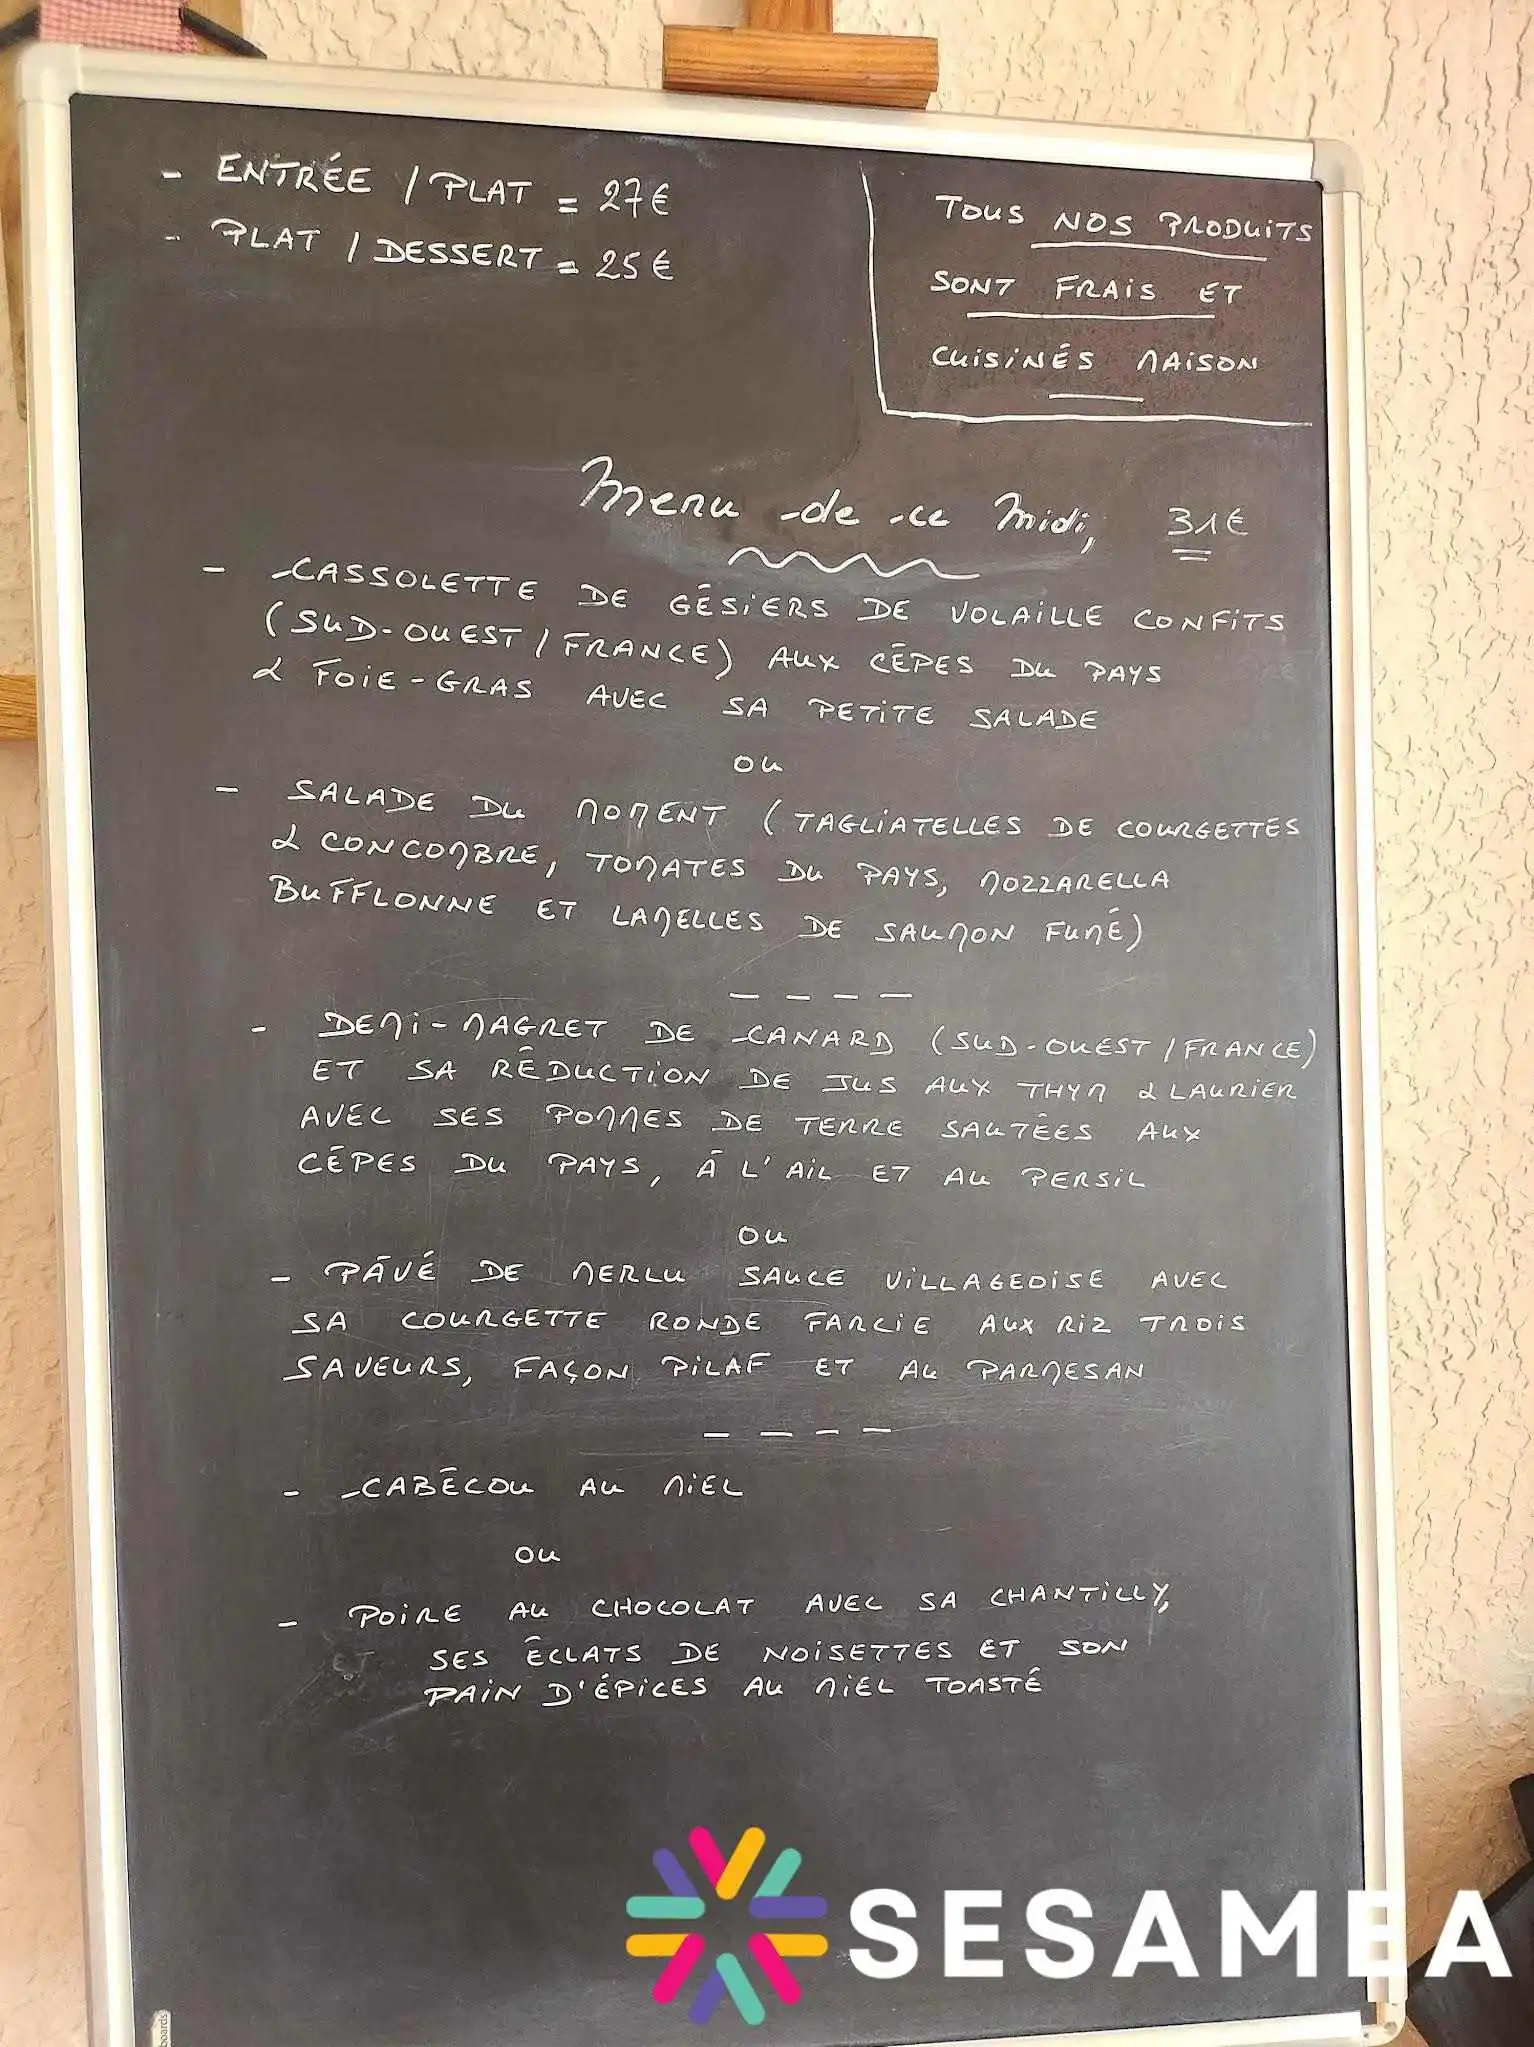 - ENTRÉE / PLAT = 27€
- PLAT / DESSERT = 25€
TOUS NOS PRODUITS
SONT FRAIS ET
CUISINÉS MAISON
Menu de ce Midi, 31€
- CASSOLETTE DE GÉSIERS DE VOLAILLE CONFITS
(SUD-OUEST / FRANCE) AUX CÉPES DU PAYS
& FOIE-GRAS AVEC SA PETITE SALADE
OU
- SALADE DU MOMENT (TAGLIATELLES DE COURGETTES
& CONCOMBRE, TOMATES DU PAYS, MOZZARELLA
BUFFLONNE ET LAMELLES DE SAUMON FUMÉ)
- DEMI-MAGRET DE CANARD (SUD-OUEST / FRANCE)
ET SA RÉDUCTION DE JUS AUX THYM & LAURIER
AVEC SES POMMES DE TERRE SAUTÉES AUX
CÉPES DU PAYS, À L'AIL ET AU PERSIL
OU
- PÂVÉ DE MERLU SAUCE VILLAGEOISE AVEC
SA COURGETTE RONDE FARCIE AUX RIZ TROIS
SAVEURS, FAÇON PILAF ET AU PARMESAN
- CABÉCOU AU MIEL
OU
- POIRE AU CHOCOLAT AVEC SA CHANTILLY,
SES ÉCLATS DE NOISETTES ET SON
PAIN D'ÉPICES AU MIEL TOASTÉ
SESAMEA